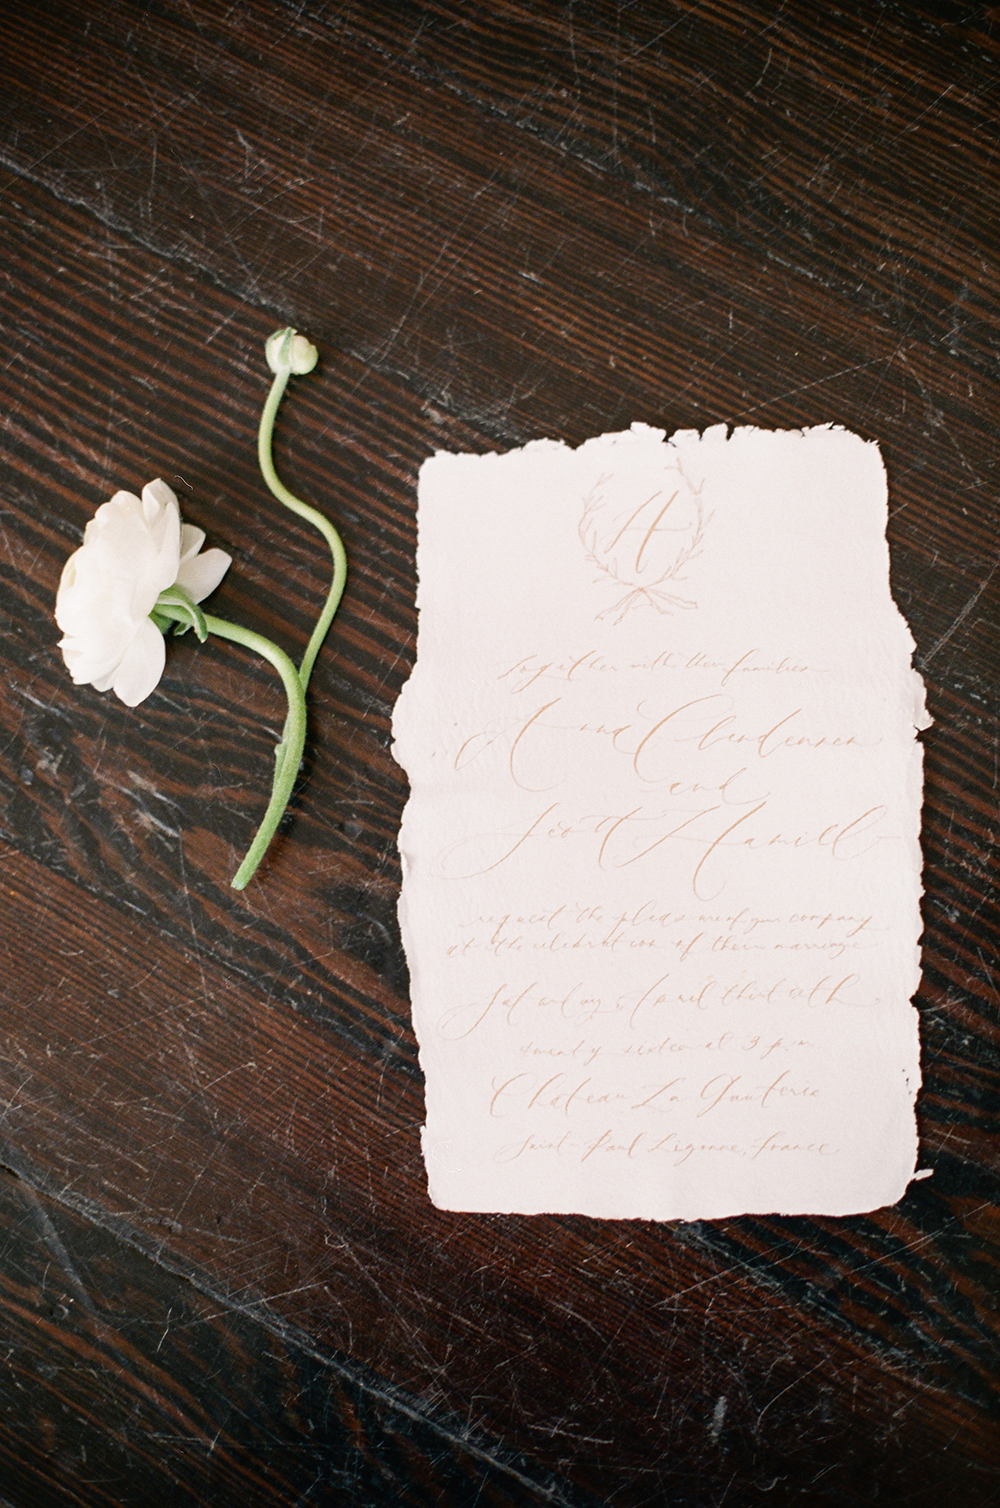 H
together with their families
Anna Clendennen
and
Scott Hamill
request the pleasure of your company
at the celebration of their marriage
Saturday, April thirtieth
twenty sixteen at 3 p.m.
Chateau La Gauterie
Saint-Paul Lizonne, France